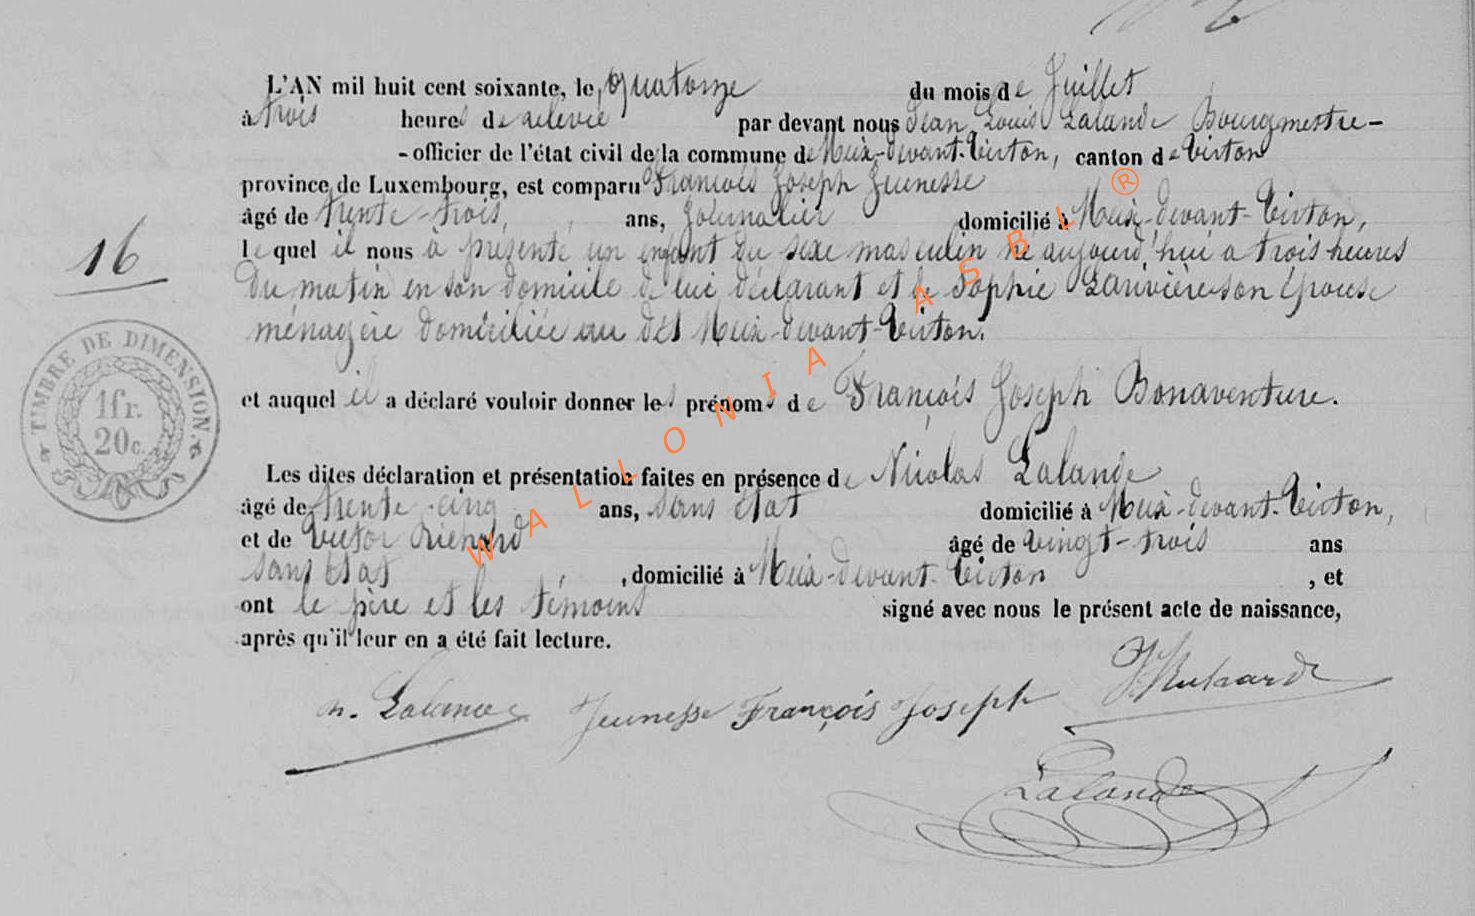 L'AN mil huit cent soixante, le quatorze du mois de Juillet
à trois heures de relevée par devant nous Jean Louis Lalande Bourgmestre-
- officier de l'état civil de la commune de Meix-devant-Virton, canton de Virton
province de Luxembourg, est comparu François Joseph Jeunesse
âgé de trente-trois, ans, journalier domicilié à Meix-devant-Virton,
16
lequel il nous a présenté un enfant du sexe masculin né aujourd'hui a trois heures
du matin en son domicile de lui déclarant et de Sophie Lauvière son épouse
ménagère domiciliée au dit Meix-devant-Virton.
TIMBRE DE DIMENSION.
1fr.
20c.
et auquel il a déclaré vouloir donner les prénoms de François Joseph Bonaventure.
Les dites déclaration et présentation faites en présence de Nicolas Lalande
âgé de trente-cinq ans, sans état domicilié à Meix-devant-Virton,
et de Victor Richard âgé de vingt-trois ans
sans état , domicilié à Meix-devant-Virton , et
ont le père et les témoins signé avec nous le présent acte de naissance,
après qu'il leur en a été fait lecture.
n. Lalande Jeunesse François Joseph V Richard
Lalande
WALLONIA ASBL ®